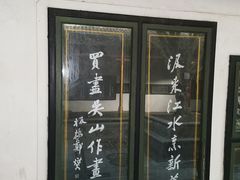 汲来江水烹新
買盡吳山作畫
板橋鄭燮